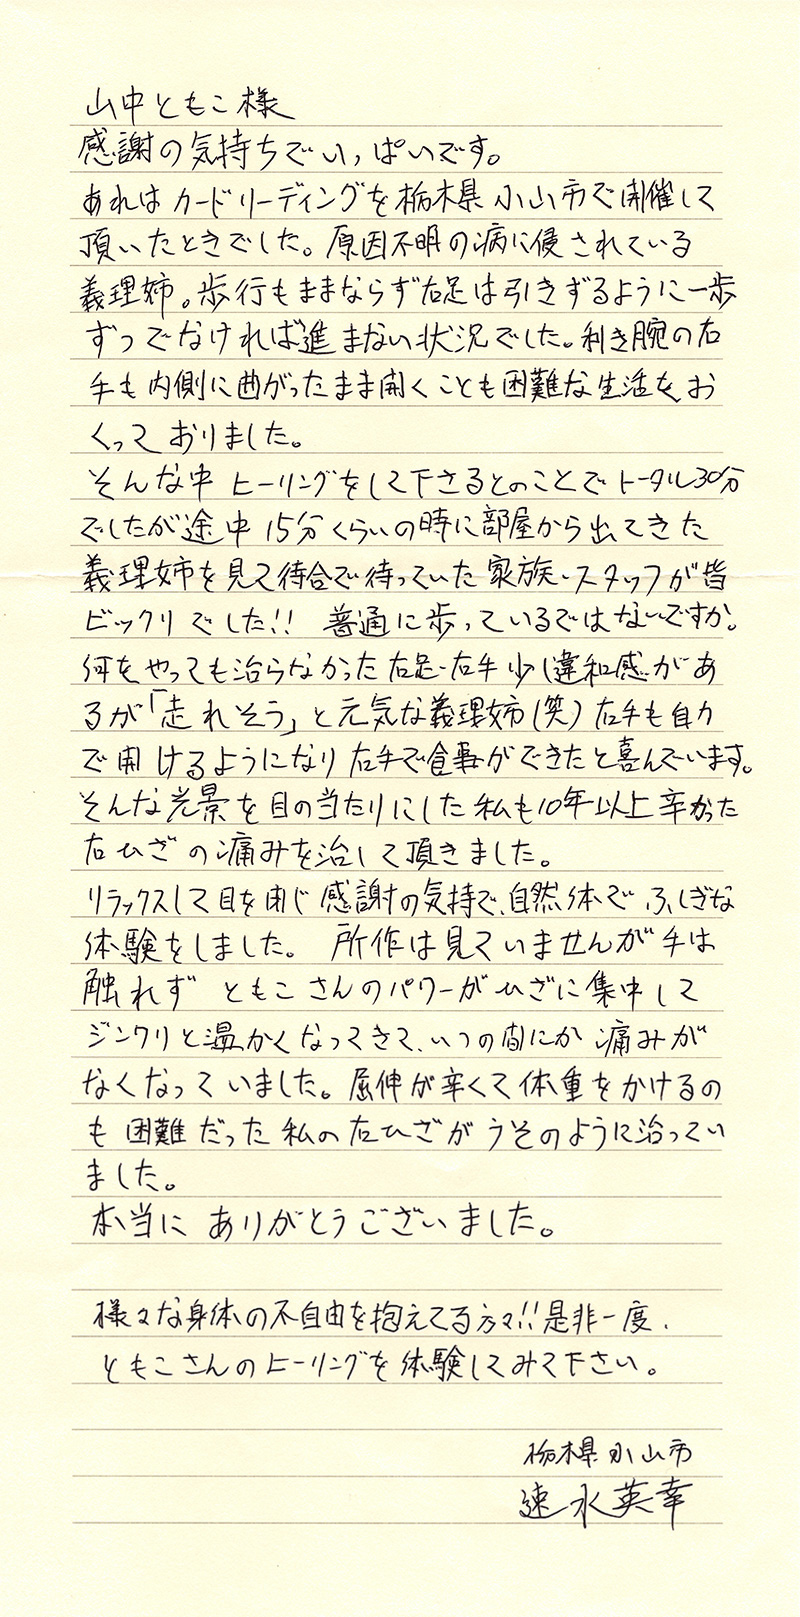 山中ともこ様
感謝の気持ちでいっぱいです。
あれはカードリーディングを栃木県小山市で開催して
頂いたときでした。原因不明の病に侵されている
義理姉。歩行もままならず右足は引きずるように一歩
ずつでなければ進まない状況でした。利き腕の右
手も内側に曲がったまま開くことも困難な生活をお
くっておりました。
そんな中ヒーリングをして下さるとのことでトータル30分
でしたが途中15分くらいの時に部屋から出てきた
義理姉を見て待合で待っていた家族・スタッフが皆
ビックリでした!! 普通に歩っているではないですか。
何をやっても治らなかった右足・右手少し違和感があ
るが「走れそう」と元気な義理姉(笑)右手も自力
で開けるようになり右手で食事ができたと喜んでいます。
そんな光景を目の当たりにした私も10年以上辛かった
右ひざの痛みを治して頂きました。
リラックスして目を閉じ感謝の気持で、自然体でふしぎな
体験をしました。 所作は見ていませんが手は
触れず ともこさんのパワーがひざに集中して
ジンワリと温かくなってきて、いつの間にか痛みが
なくなっていました。屈伸が辛くて体重をかけるの
も困難だった私の右ひざがうそのように治ってい
ました。
本当にありがとうございました。
様々な身体の不自由を抱えてる方々!!是非一度、
ともこさんのヒーリングを体験してみて下さい。
栃木県小山市
速水英幸